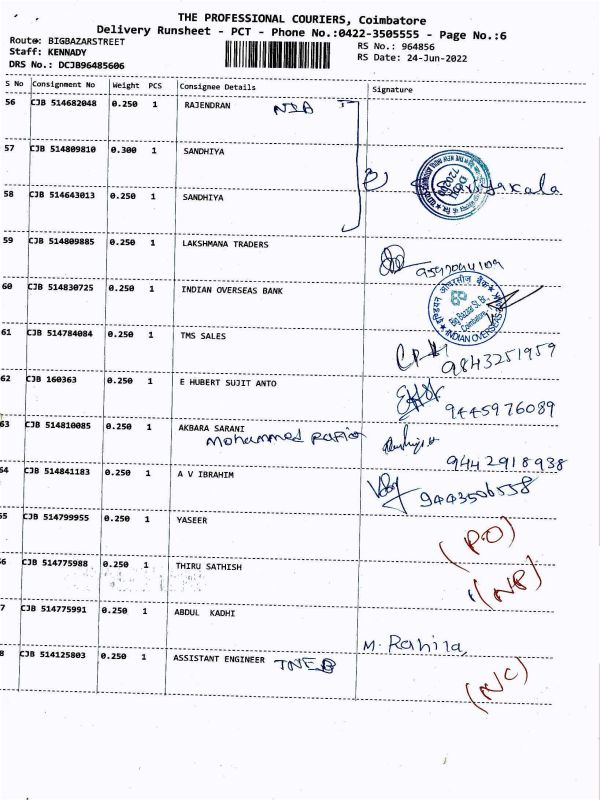 THE PROFESSIONAL COURIERS, Coimbatore
Delivery Runsheet - PCT - Phone No.:0422-3505555 - Page No.:6
Route: BIGBAZARSTREET
Staff: KENNADY
DRS No.: DCJB96485606
RS No.: 964856
RS Date: 24-Jun-2022
S No Consignment No Weight PCS Consignee Details Signature
56 CJB 514682048 0.250 1 RAJENDRAN NIA
57 CJB 514809810 0.300 1 SANDHIYA
58 CJB 514643013 0.250 1 SANDHIYA
59 CJB 514809885 0.250 1 LAKSHMANA TRADERS
60 CJB 514830725 0.250 1 INDIAN OVERSEAS BANK
इण्डियन ओवरसीज़ बैंक
Big Bazaar St. Br.
Coimbatore
INDIAN OVERSEAS
61 CJB 514784084 0.250 1 TMS SALES 9843251959
62 CJB 160363 0.250 1 E HUBERT SUJIT ANTO 9445976089
63 CJB 514810085 0.250 1 AKBARA SARANI
Mohammed Rafiq 9442918938
64 CJB 514841183 0.250 1 A V IBRAHIM 9443506558
55 CJB 514799955 0.250 1 YASEER (PO)
56 CJB 514775988 0.250 1 THIRU SATHISH (NP)
7 CJB 514775991 0.250 1 ABDUL KADHI M. Rahila
8 CJB 514125803 0.250 1 ASSISTANT ENGINEER TNEB (NC)